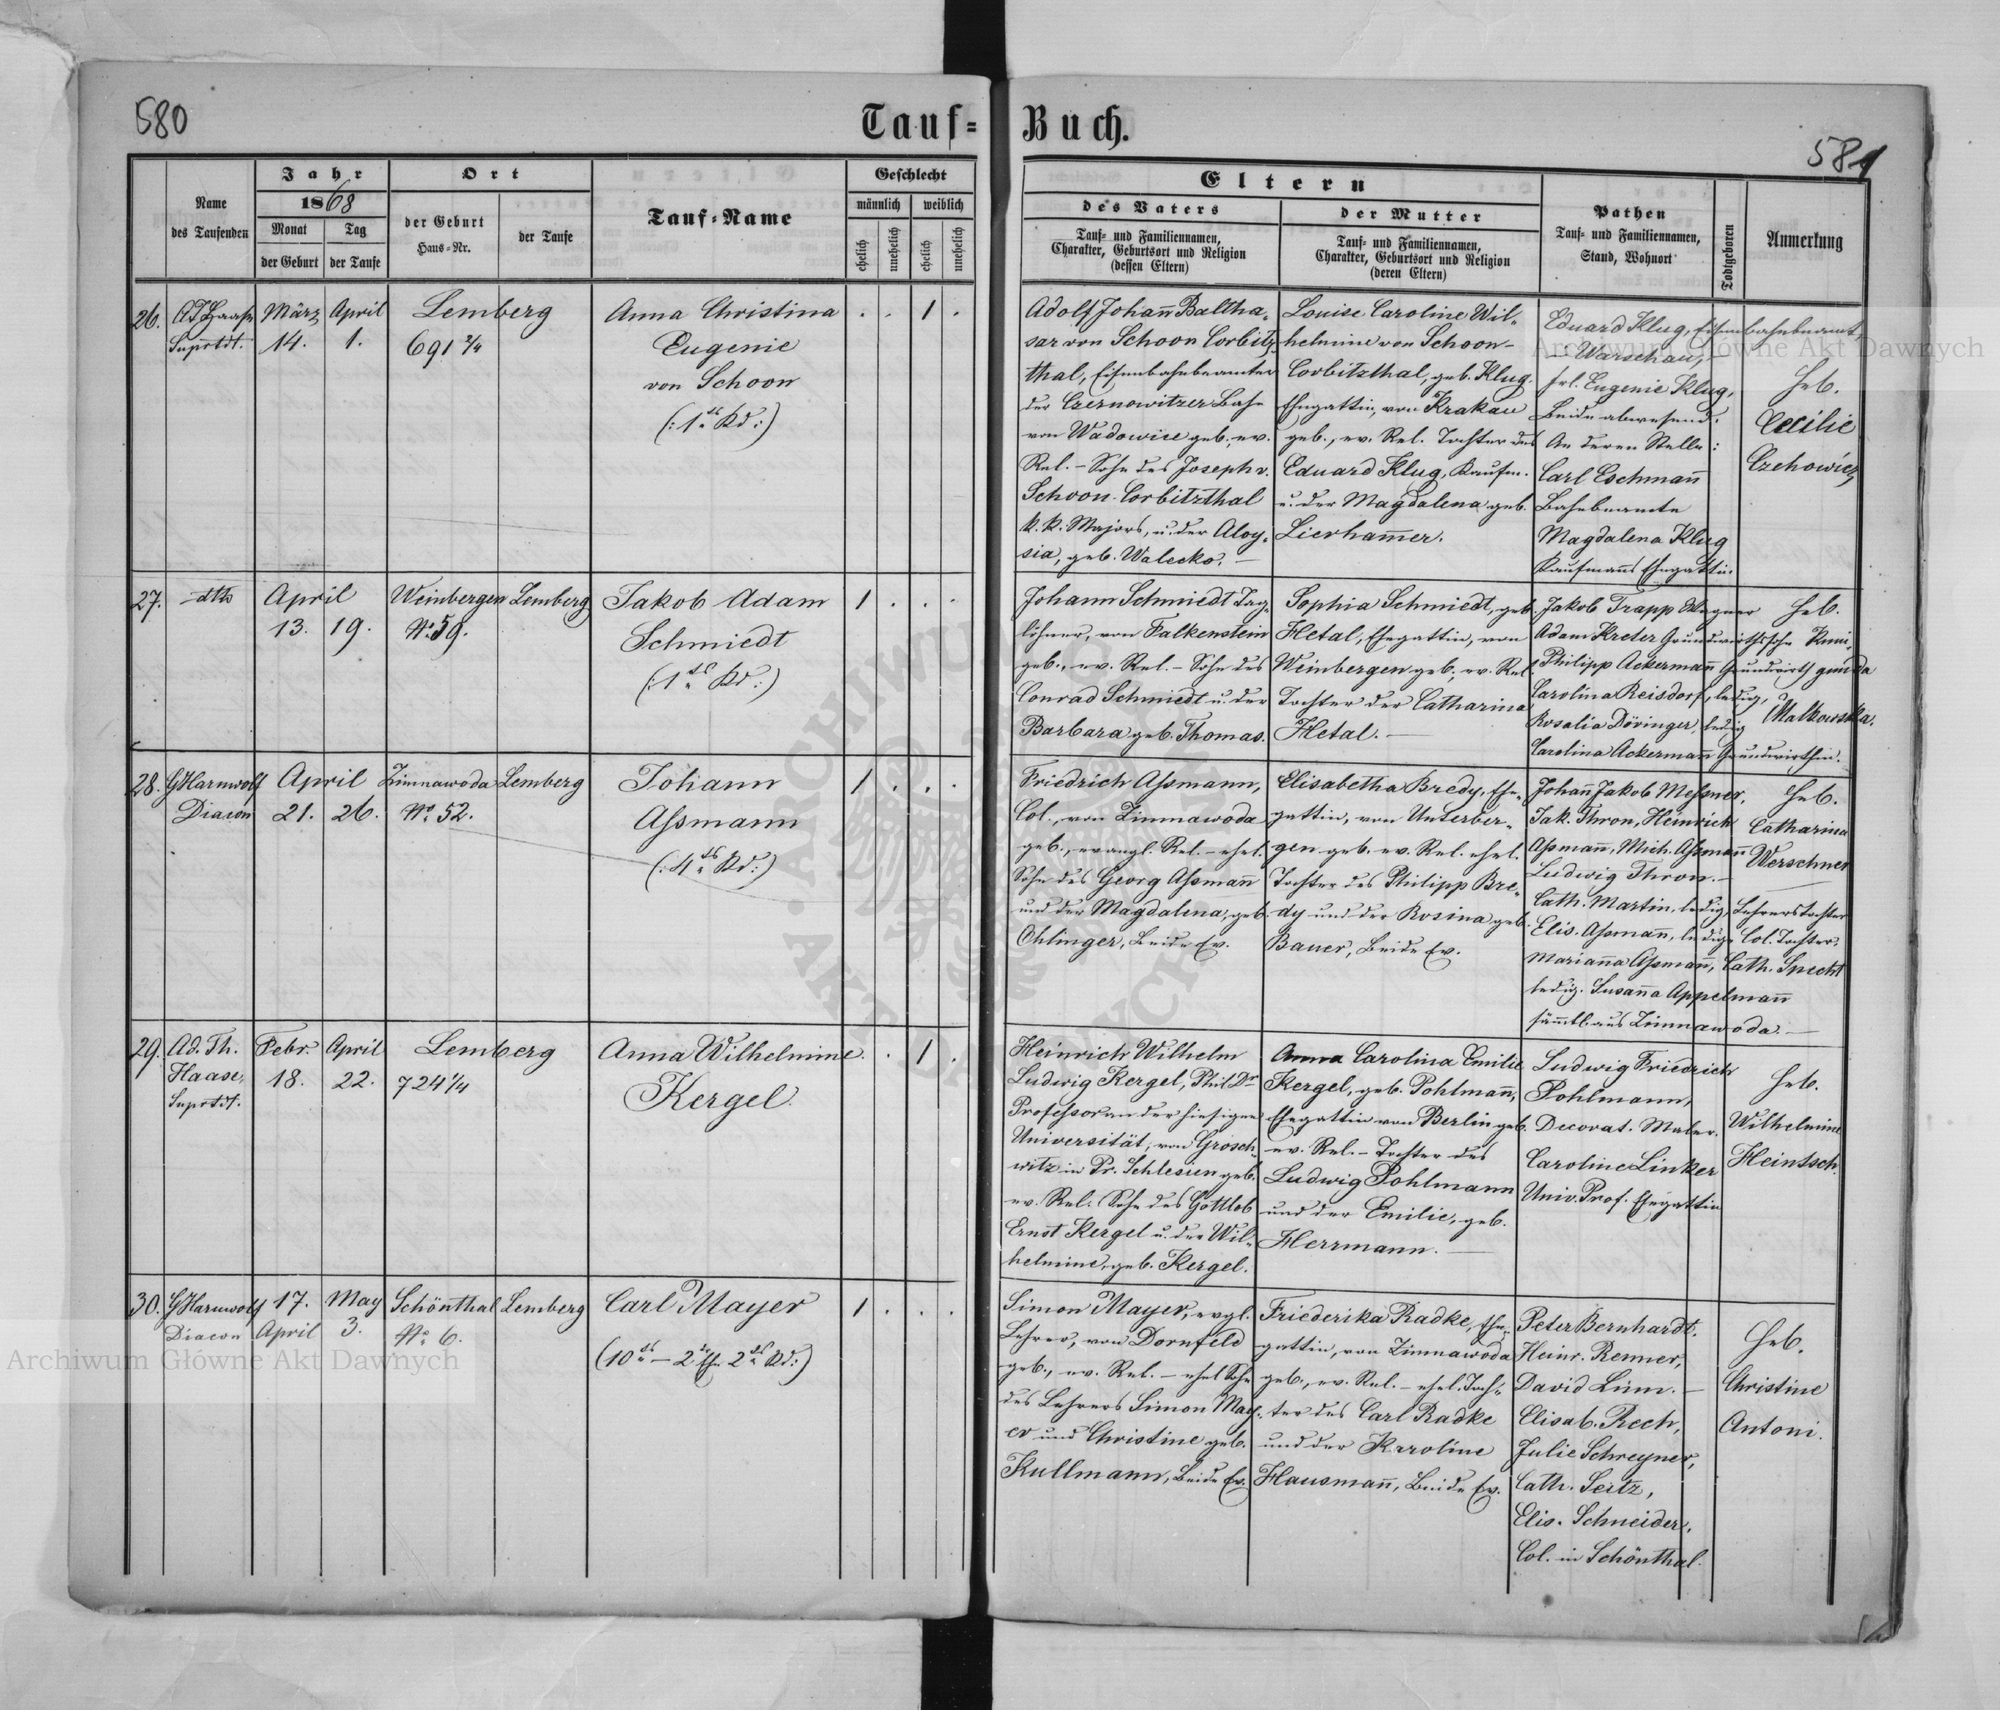 580
Tauf=
Buch.
581
Name
des Taufenden
Jahr
1868
Monat
der Geburt
Tag
der Taufe
Ort
der Geburt
Haus=Nr.
der Taufe
Tauf=Name
Geschlecht
männlich
weiblich
ehelich
unehelich
ehelich
unehelich
Eltern
des Vaters
Tauf= und Familiennamen,
Charakter, Geburtsort und Religion
(dessen Eltern)
der Mutter
Tauf= und Familiennamen,
Charakter, Geburtsort und Religion
(deren Eltern)
Pathen
Tauf= und Familiennamen,
Stand, Wohnort
Todtgeboren
Anmerkung
26.
Haase
Suprtdt.
März
14.
April
1.
Lemberg
691 2/4
Anna Christina
Eugenie
von Schoon
(:1tes Kd:)
1
Adolf Johañ Baltha-
sar von Schoon Corbitz-
thal, Eisenbahnbeamter
der Czernowitzer Bahn
von Wadowice geb., ev.
Rel. – Sohn des Joseph v.
Schoon-Corbitzthal
k. k. Majors, u. der Aloy-
sia, geb. Walecko. —
Louise Caroline Wil-
helmine von Schoon-
Corbitzthal, geb. Klug.
Ehegattin, von Krakau
geb., ev. Rel. Tochter des
Eduard Klug, Kaufm.
u. der Magdalena geb.
Lierham̃er.
Eduard Klug, Eisenbahnbeamt,
– Warschau, –
Frl. Eugenie Klug,
Beide abwesend.
An deren Stelle:
Carl Eschmañ
Bahnbeamte
Magdalena Klug
Kaufmanns Ehegattin.
Heb.
Cecilie
Czehowicz
27.
dto
April
13.
19.
Weinbergen
No. 59.
Lemberg
Jakob Adam
Schmiedt
(:1tes Kd:)
1
Johann Schmiedt Tag-
löhner, von Falkenstein
geb., ev. Rel. – Sohn des
Conrad Schmiedt u. der
Barbara geb. Thomas.
Sophia Schmiedt, geb.
Hetal, Ehegattin, von
Weinbergen geb., ev. Rel.
Tochter der Catharina
Hetal. —
Jakob Trapp Wagner
Adam Kreter Grundwirthssohn
Philipp Ackermañ Grundwirth
Carolina Reisdorf, ledig,
Rosalia Döringer, ledig
Carolina Ackermañ Grundwirthin.
Heb.
Kuni-
gunda
Malkowska.
28.
G Harnwolf
Diacon
April
21.
26.
Zimnawoda
No. 52.
Lemberg
Johann
Aßmann
(:4tes Kd:)
1
Friedrich Aßmann,
Col., von Zimnawoda
geb., evangl. Rel. – ehel.
Sohn des Georg Aßmañ
und der Magdalena, geb.
Ohlinger, Beide Ev.
Elisabetha Bredy, Ehe-
gattin, von Unterber-
gen geb. ev. Rel. ehel.
Tochter des Philipp Bre-
dy und der Rosina geb.
Bauer, Beide Ev.
Johañ Jakob Meßner,
Jak. Thron, Heinrich
Aßmañ, Mich. Aßmañ
Ludwig Thron. –
Cath. Martin, ledig, Lehrerstochter
Elis. Aßmañ, ledige Col. Tochter,
Mariaña Aßmañ, Cath. Specht
ledig. Susaña Appelmañ
sämmtl. aus Zimnawoda. —
Heb.
Catharina
Werschner
29.
Ad. Th.
Haase,
Suprtdt.
Febr.
18.
April
22.
Lemberg
724 1/4
Anna Wilhelmine
Kergel.
1
Heinrich Wilhelm
Ludwig Kergel, Phil. Dr.
Professor an der hiesigen
Universität, von Grosch-
witz in Pr. Schlesien geb.
ev. Rel. Sohn des Gottlob
Ernst Kergel u. der Wil-
helmine, geb. Kergel.
Anna Carolina Emilie
Kergel, geb. Pohlmañ,
Ehegattin von Berlin geb.
ev. Rel. – Tochter des
Ludwig Pohlmann
und der Emilie, geb.
Herrmann. —
Ludwig Friedrich
Pohlmann,
Decorat. Maler.
Caroline Linker
Univ. Prof. Ehegattin
Heb.
Wilhelmine
Heintsch.
30.
G Harnwolf
Diacon
17.
April
May
3.
Schönthal
No. 6.
Lemberg
Carl Mayer
(10tes – 2ter Ehe 2tes Kd:)
1
Simon Mayer, evgl.
Lehrer, von Dornfeld
geb., ev. Rel. – ehel Sohn
des Lehrers Simon May-
er und Christine geb.
Kullmann, Beide Ev.
Friederika Radke, Ehe-
gattin, von Zimnawoda
geb., ev. Rel. – ehel. Toch-
ter des Carl Radke
und der Karoline
Hausmañ, Beide Ev.
Peter Bernhardt.
Heinr. Renner,
David Linn. –
Elisab. Rech,
Julie Schreyner,
Cath. Seitz,
Elis. Schneider.
Col. in Schönthal.
Heb.
Christine
Antoni.
Archiwum Główne Akt Dawnych
Archiwum Główne Akt Dawnych